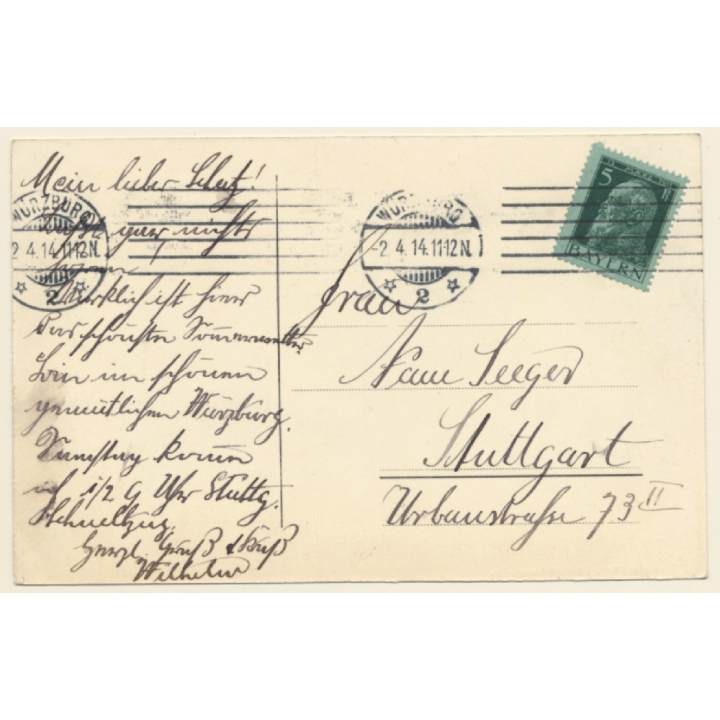 Mein lieber Schatz!
gar nichts
Wirklich ist hier
das schönste Sommerwetter.
Bin im schönen
gemütlichen Würzburg.
Samstag komme
ich 1/2 9 Uhr Stuttg.
Schnellzug.
Herzl. Gruß & Kuß
Wilhelm
WÜRZBURG
2.4.14.11-12N.
2
WÜRZBURG
-2.4.14.11-12N.
2
5
BAYERN
Frau
Seeger
Stuttgart
Urbanstraße 73 II